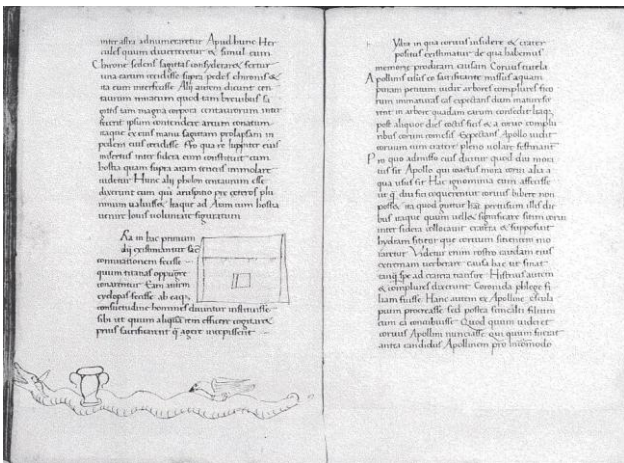 inter astra adnumeraretur Apud hunc Her
cules quum diverteretur & simul cum
Chirone sedens sagittas consyderaret fertur
una earum cecidisse supra pedes chironis &
ita eum interfecisse Alii autem dicunt cen
taurum miratum quod tam brevibus sa
gittis tam magna corpora centaurorum inter
fecerit ipsum contendere arcum conatum
itaque ex eius manu sagittam prolapsam in
pedem eius cecidisse Pro qua re Iuppiter eius
misertus inter sidera eum constituit cum
hostia quam supra aram tenens immolare
videtur Hunc alii pholon centaurum esse
dixerunt eum qui aruspitio pre ceteros plu
rimum valuisse itaque ad Aram cum hostia
venire Iovis voluntate figuratum
Ra in hac primum
dii existimantur sac
coniurationem fecisse
quum titanas oppugnare
conarentur Eam autem
cyclopas fecisse ab ea
consuetudine homines dicuntur instituisse
sibi ut quum aliquam rem efficere cogitarent
prius sacrificarent q agere incepissent
Ydra in qua corvus insidere & crater
positus existimatur de qua habemus
memorie proditam causam Corvus tutela
Apollinis eius eo sacrificante missus aquam
puram petitum vidit arbores complures fico
rum immaturas eas expectans dum mature fie
rent in arbore quadam earum consedit itaque
post aliquot dies coctis ficis & a corvo complu
ribus eorum comesis Expectans Apollo vidit
corvum cum cratere pleno volare festinantem
Pro quo admisso eius dicitur quod diu mora
tus sit Apollo qui coactus mora corvi alia a
qua usus sit Hac ignominia eum affecisse
ut q diu fici coquerentur corvus bibere non
possit
bus itaque quum vellet significare sitim corvi
inter sidera collocavit cratera & supposuit
hydram sitere que corvum sitientem mo
raretur Videtur enim rostro caudam eius
extremam verberare causa hac ut sinat
tanq se ad cratera transire Histrus autem
& complures dixerunt Coronida phlegie fi
liam fuisse Hanc autem ex Apolline Escula
pium procreasse sed postea
cum ea concubuisse Quod quum vidisset
corvus Apollini nunciasse qui quum fuerat
antea candidus Apollinem pro incommodo